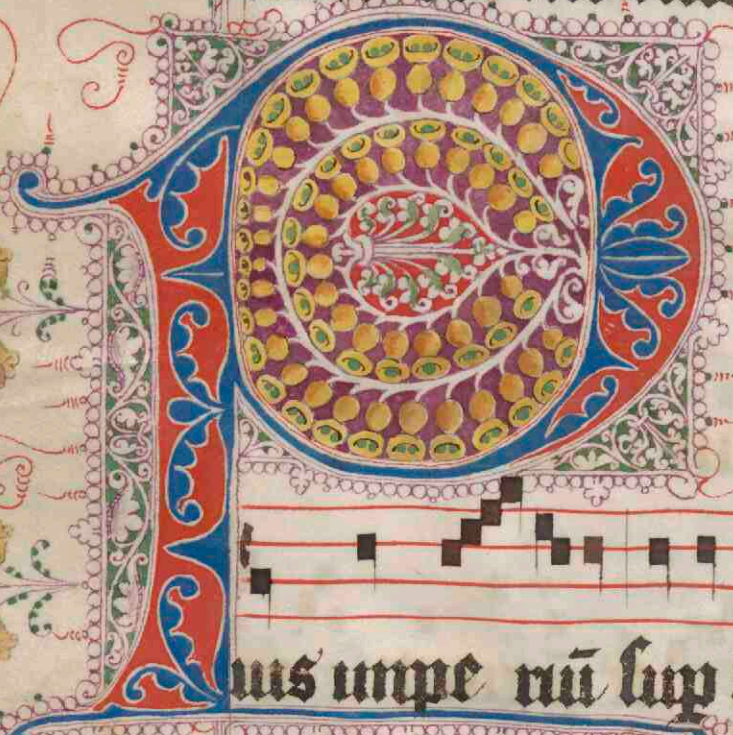 ius impe riū sup